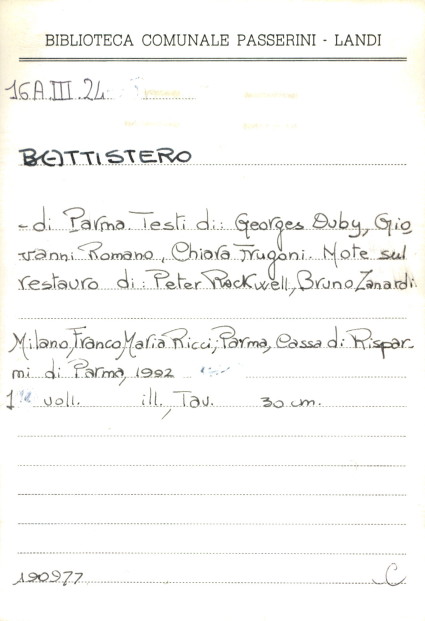 BIBLIOTECA COMUNALE PASSERINI - LANDI
16A.III.24
BATTISTERO
- di Parma. Testi di: Georges Duby, Gio
vanni Romano, Chiara Frugoni. Note sul
restauro di: Peter Rockwell, Bruno Zanardi.
Milano, Franco Maria Ricci; Parma, Cassa di Rispar-
mi di Parma, 1992
1 voll. ill., Tav. 30 cm.
190977 C